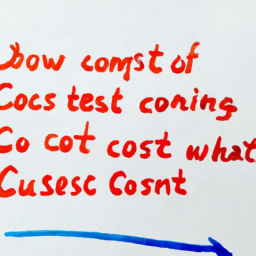 Jow comst of
Cocs test coring
Co cot cost what
Cusesc Cosnt